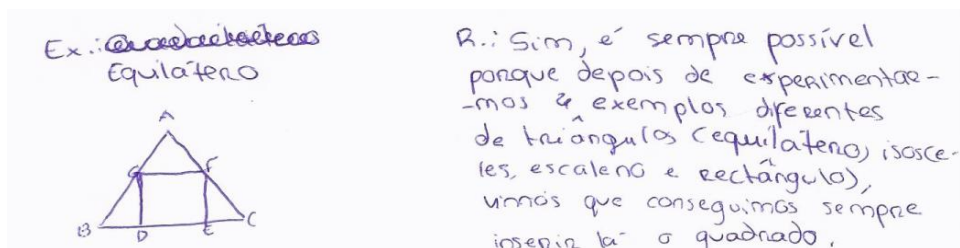 Ex.:
Equilátero
A
G F
B D E C
R.: Sim, é sempre possível
porque depois de experimentar-
-mos 4 exemplos diferentes
de triângulos (equilátero, isósce-
les, escaleno e rectângulo),
vimos que conseguimos sempre
inserir lá o quadrado.